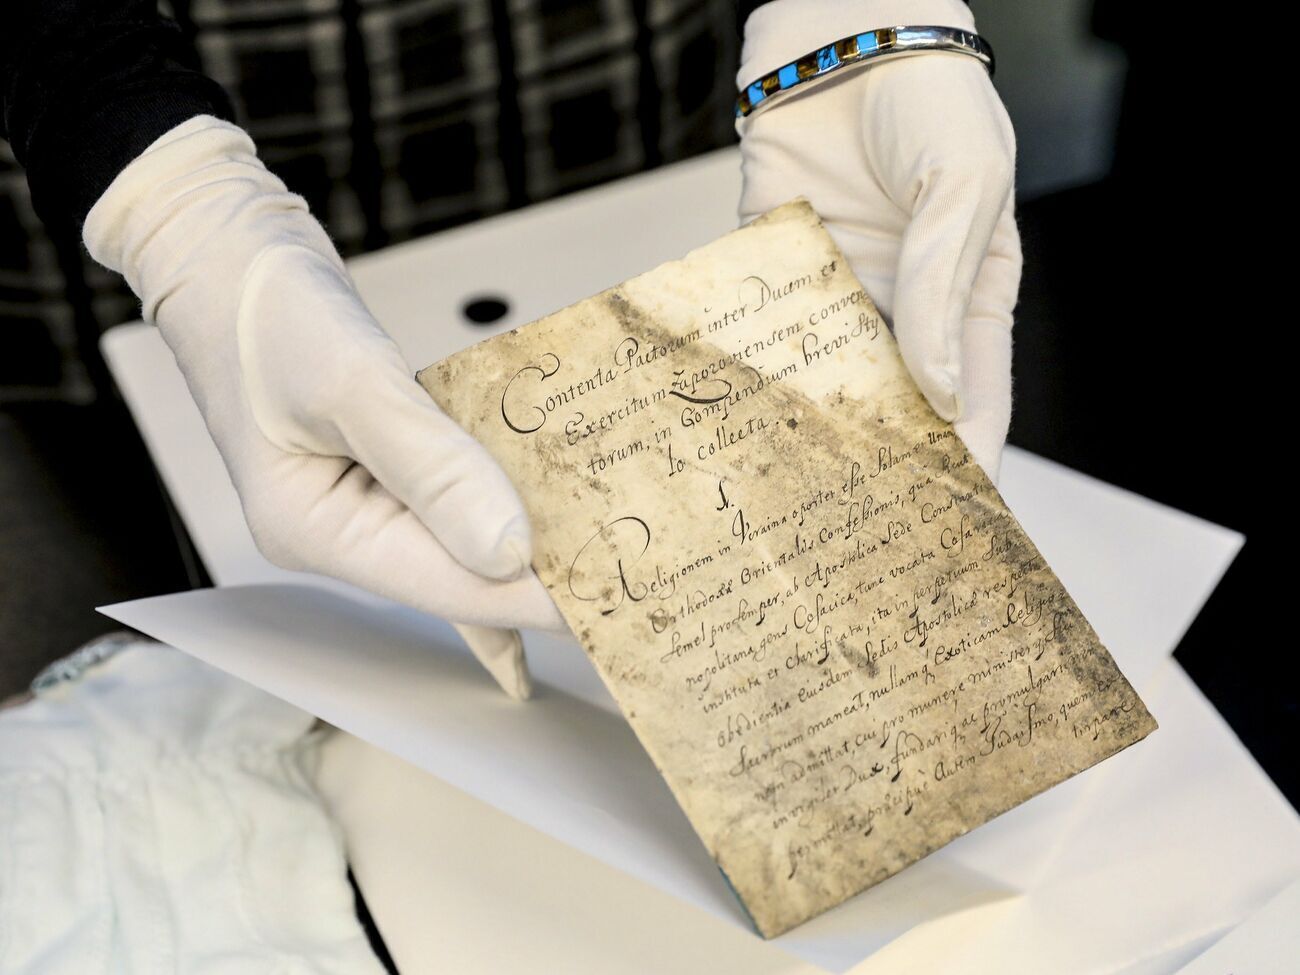 Contenta Pactorum inter Ducem et
Exercitum Zaporoviensem conven
torum, in Compendium brevi Sty
lo collecta.
1.
Religionem in Vcraina oportet esse Solam et Unam
Orthodoxæ Orientalis Confessionis, qua
semel pro semper, ab Apostolica Sede Constanti
nopolitana, gens Cosacica, tunc vocata Cosar
instituta et clarificata, ita in perpetuum Sub
obedientia eiusdem Sedis Apostolicæ respectu
maneat, nullamq Exoticam Religio
non admittat, cui pro munere ministerij
invigilet Dux, fundariq ac promulgari
permittat, præcipuè autem Judaismo, quem
tirpare